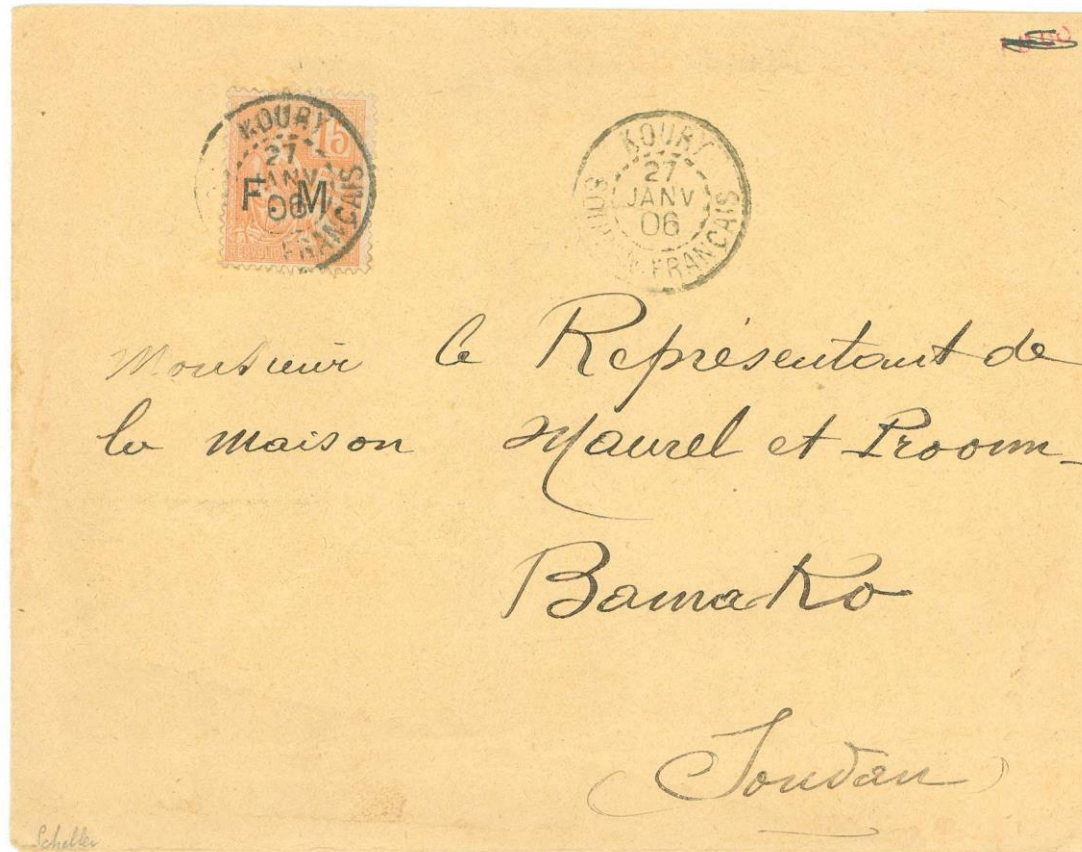 15
F. M.
KOURY
27
JANV
06
FRANCAIS
KOURY
27
JANV
06
SOUDAN FRANCAIS
Monsieur le Représentant de
la maison Maurel et Proom-
Bamako
Soudan
Scheller